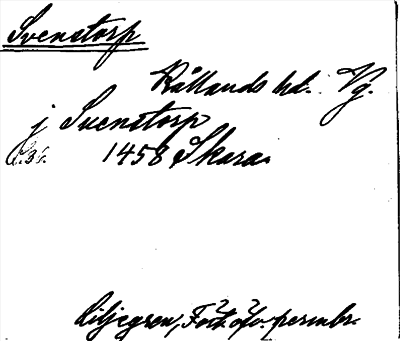 Svenstorp
Kållands hd. Vg.
j Svenstorp
1458 Skara.
Liljegren, Fört. ofv. permbr.